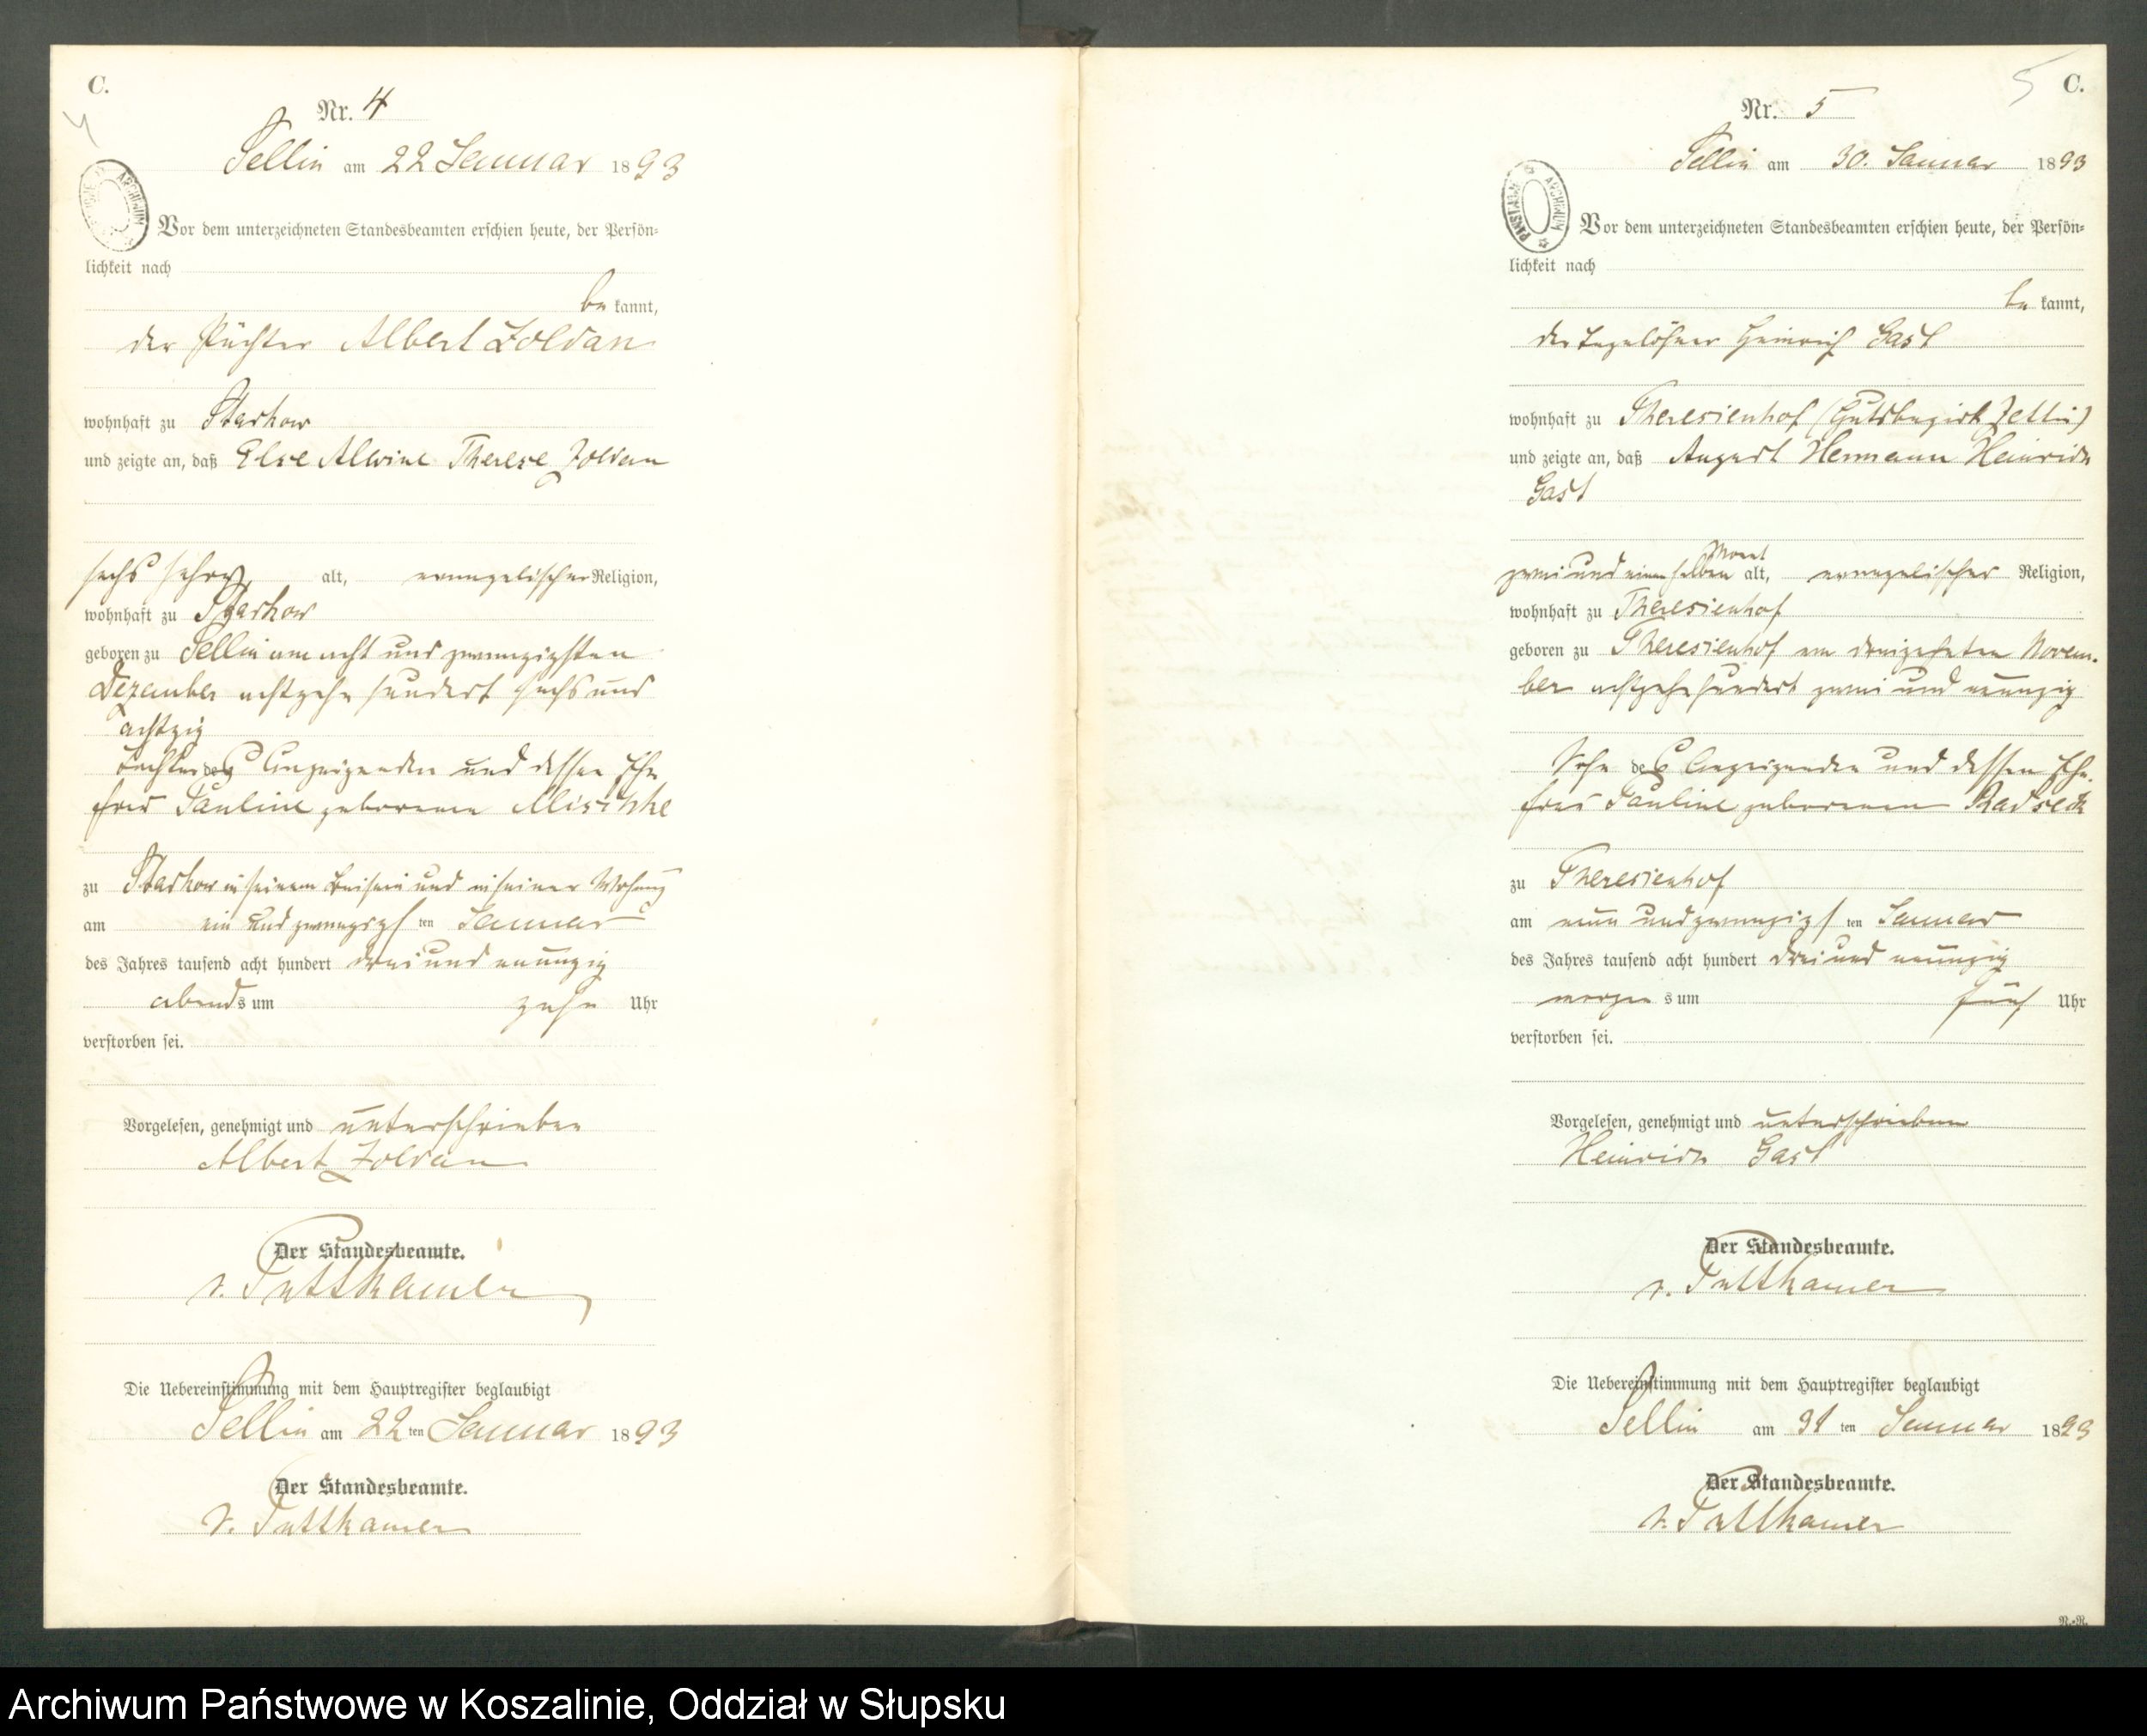 C.
4
Nr. 4
Sellin am 22 Januar 1893
ARCHIWUM
Vor dem unterzeichneten Standesbeamten erschien heute, der Persön=
lichkeit nach
be kannt,
der Pächter Albert Zoldan
wohnhaft zu Starkow
und zeigte an, daß Else Alwine Therese Zoldan
sechs Jahre alt, evangelischer Religion,
wohnhaft zu Starkow
geboren zu Sellin am acht und zwanzigsten
Dezember achtzehn hundert sechs und
achtzig
Tochter des Anzeigenden und dessen Ehe
frau Pauline geborenen Mischke
zu Starkow in seinem Beisein und in seiner Wohnung
am ein und zwanzigs ten Januar
des Jahres tausend acht hundert drei und neunzig
abends um zehn Uhr
verstorben sei.
Vorgelesen, genehmigt und unterschrieben
Albert Zoldan
Der Standesbeamte.
v. Puttkamer
Die Uebereinstimmung mit dem Hauptregister beglaubigt
Sellin am 22 ten Januar 1893
Der Standesbeamte.
v. Puttkamer
5 C.
Nr. 5
Sellin am 30. Januar 1893
PAŃSTWOWE ARCHIWUM
Vor dem unterzeichneten Standesbeamten erschien heute, der Persön=
lichkeit nach
be kannt,
der Tagelöhner Heinrich Gast
wohnhaft zu Theresienhof (Gutsbezirk Zettin)
und zeigte an, daß August Hermann Heinrich
Gast
Monat
zwei und einen halben alt, evangelischer Religion,
wohnhaft zu Theresienhof
geboren zu Theresienhof am dreizehnten Novem-
ber achtzehnhundert zwei und neunzig
Sohn des Anzeigenden und dessen Ehe-
frau Pauline geborenen Radseck
zu Theresienhof
am neun und zwanzigs ten Januar
des Jahres tausend acht hundert drei und neunzig
morgen s um fünf Uhr
verstorben sei.
Vorgelesen, genehmigt und unterschrieben
Heinrich Gast
Der Standesbeamte.
v. Puttkamer
Die Uebereinstimmung mit dem Hauptregister beglaubigt
Sellin am 31 ten Januar 1893
Der Standesbeamte.
v. Puttkamer
R.-R.
Archiwum Państwowe w Koszalinie, Oddział w Słupsku